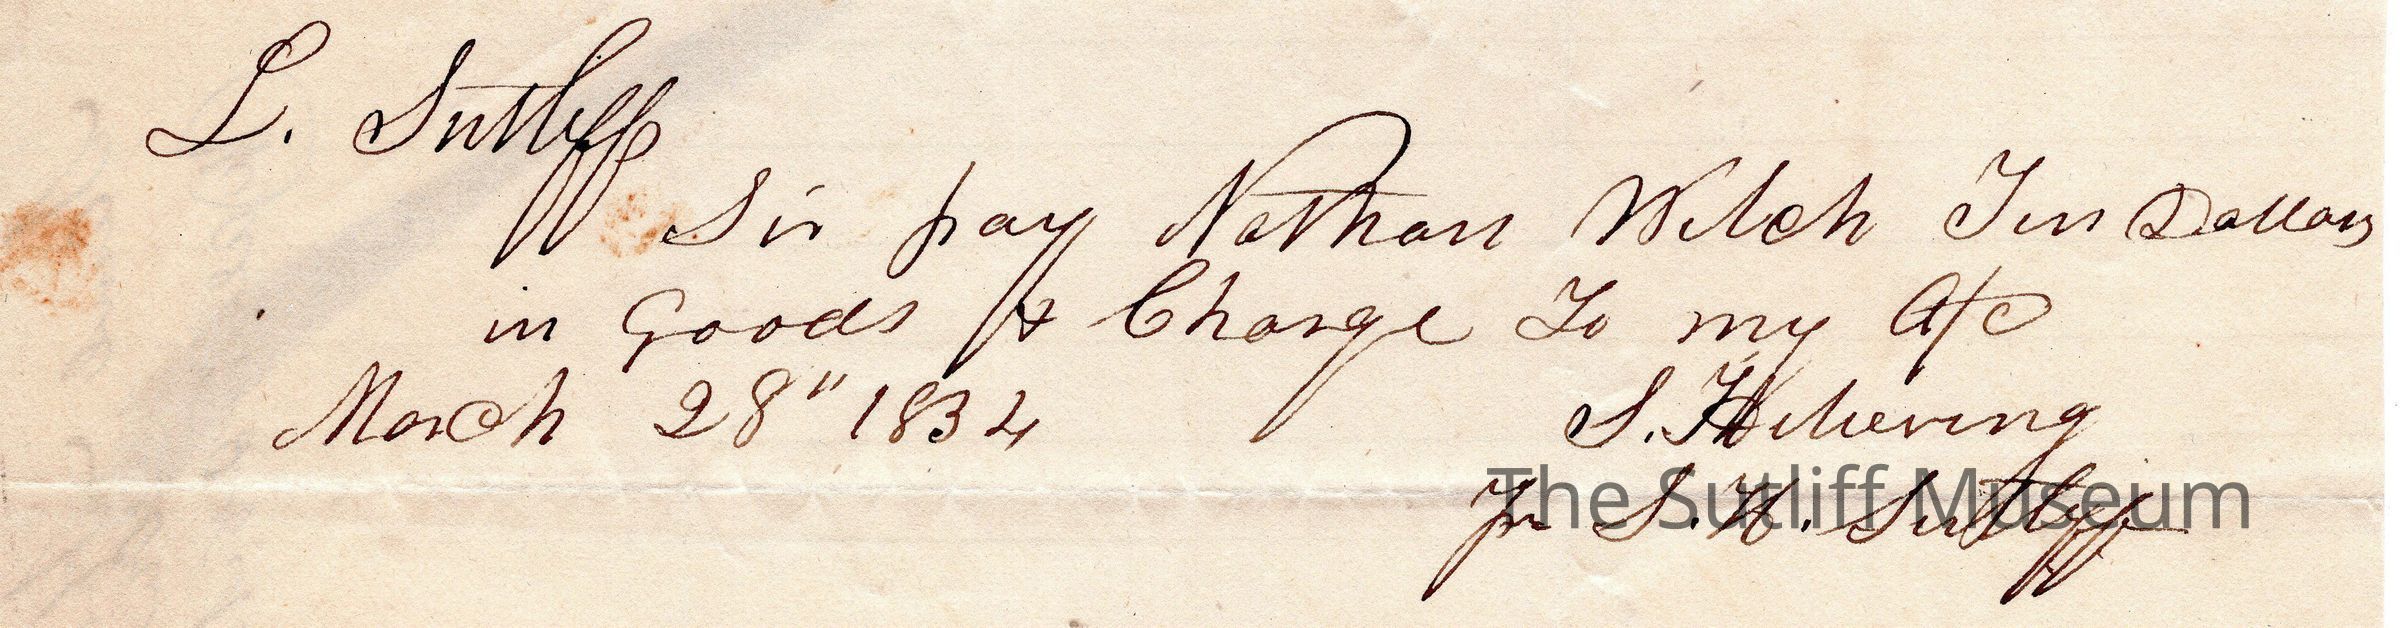 L. Sutliff
Sir pay Nathan Welch Ten Dollars
in Goods & Charge To my A/c
March 28" 1834
S.
The Sutliff Museum
S. H. Sutliff